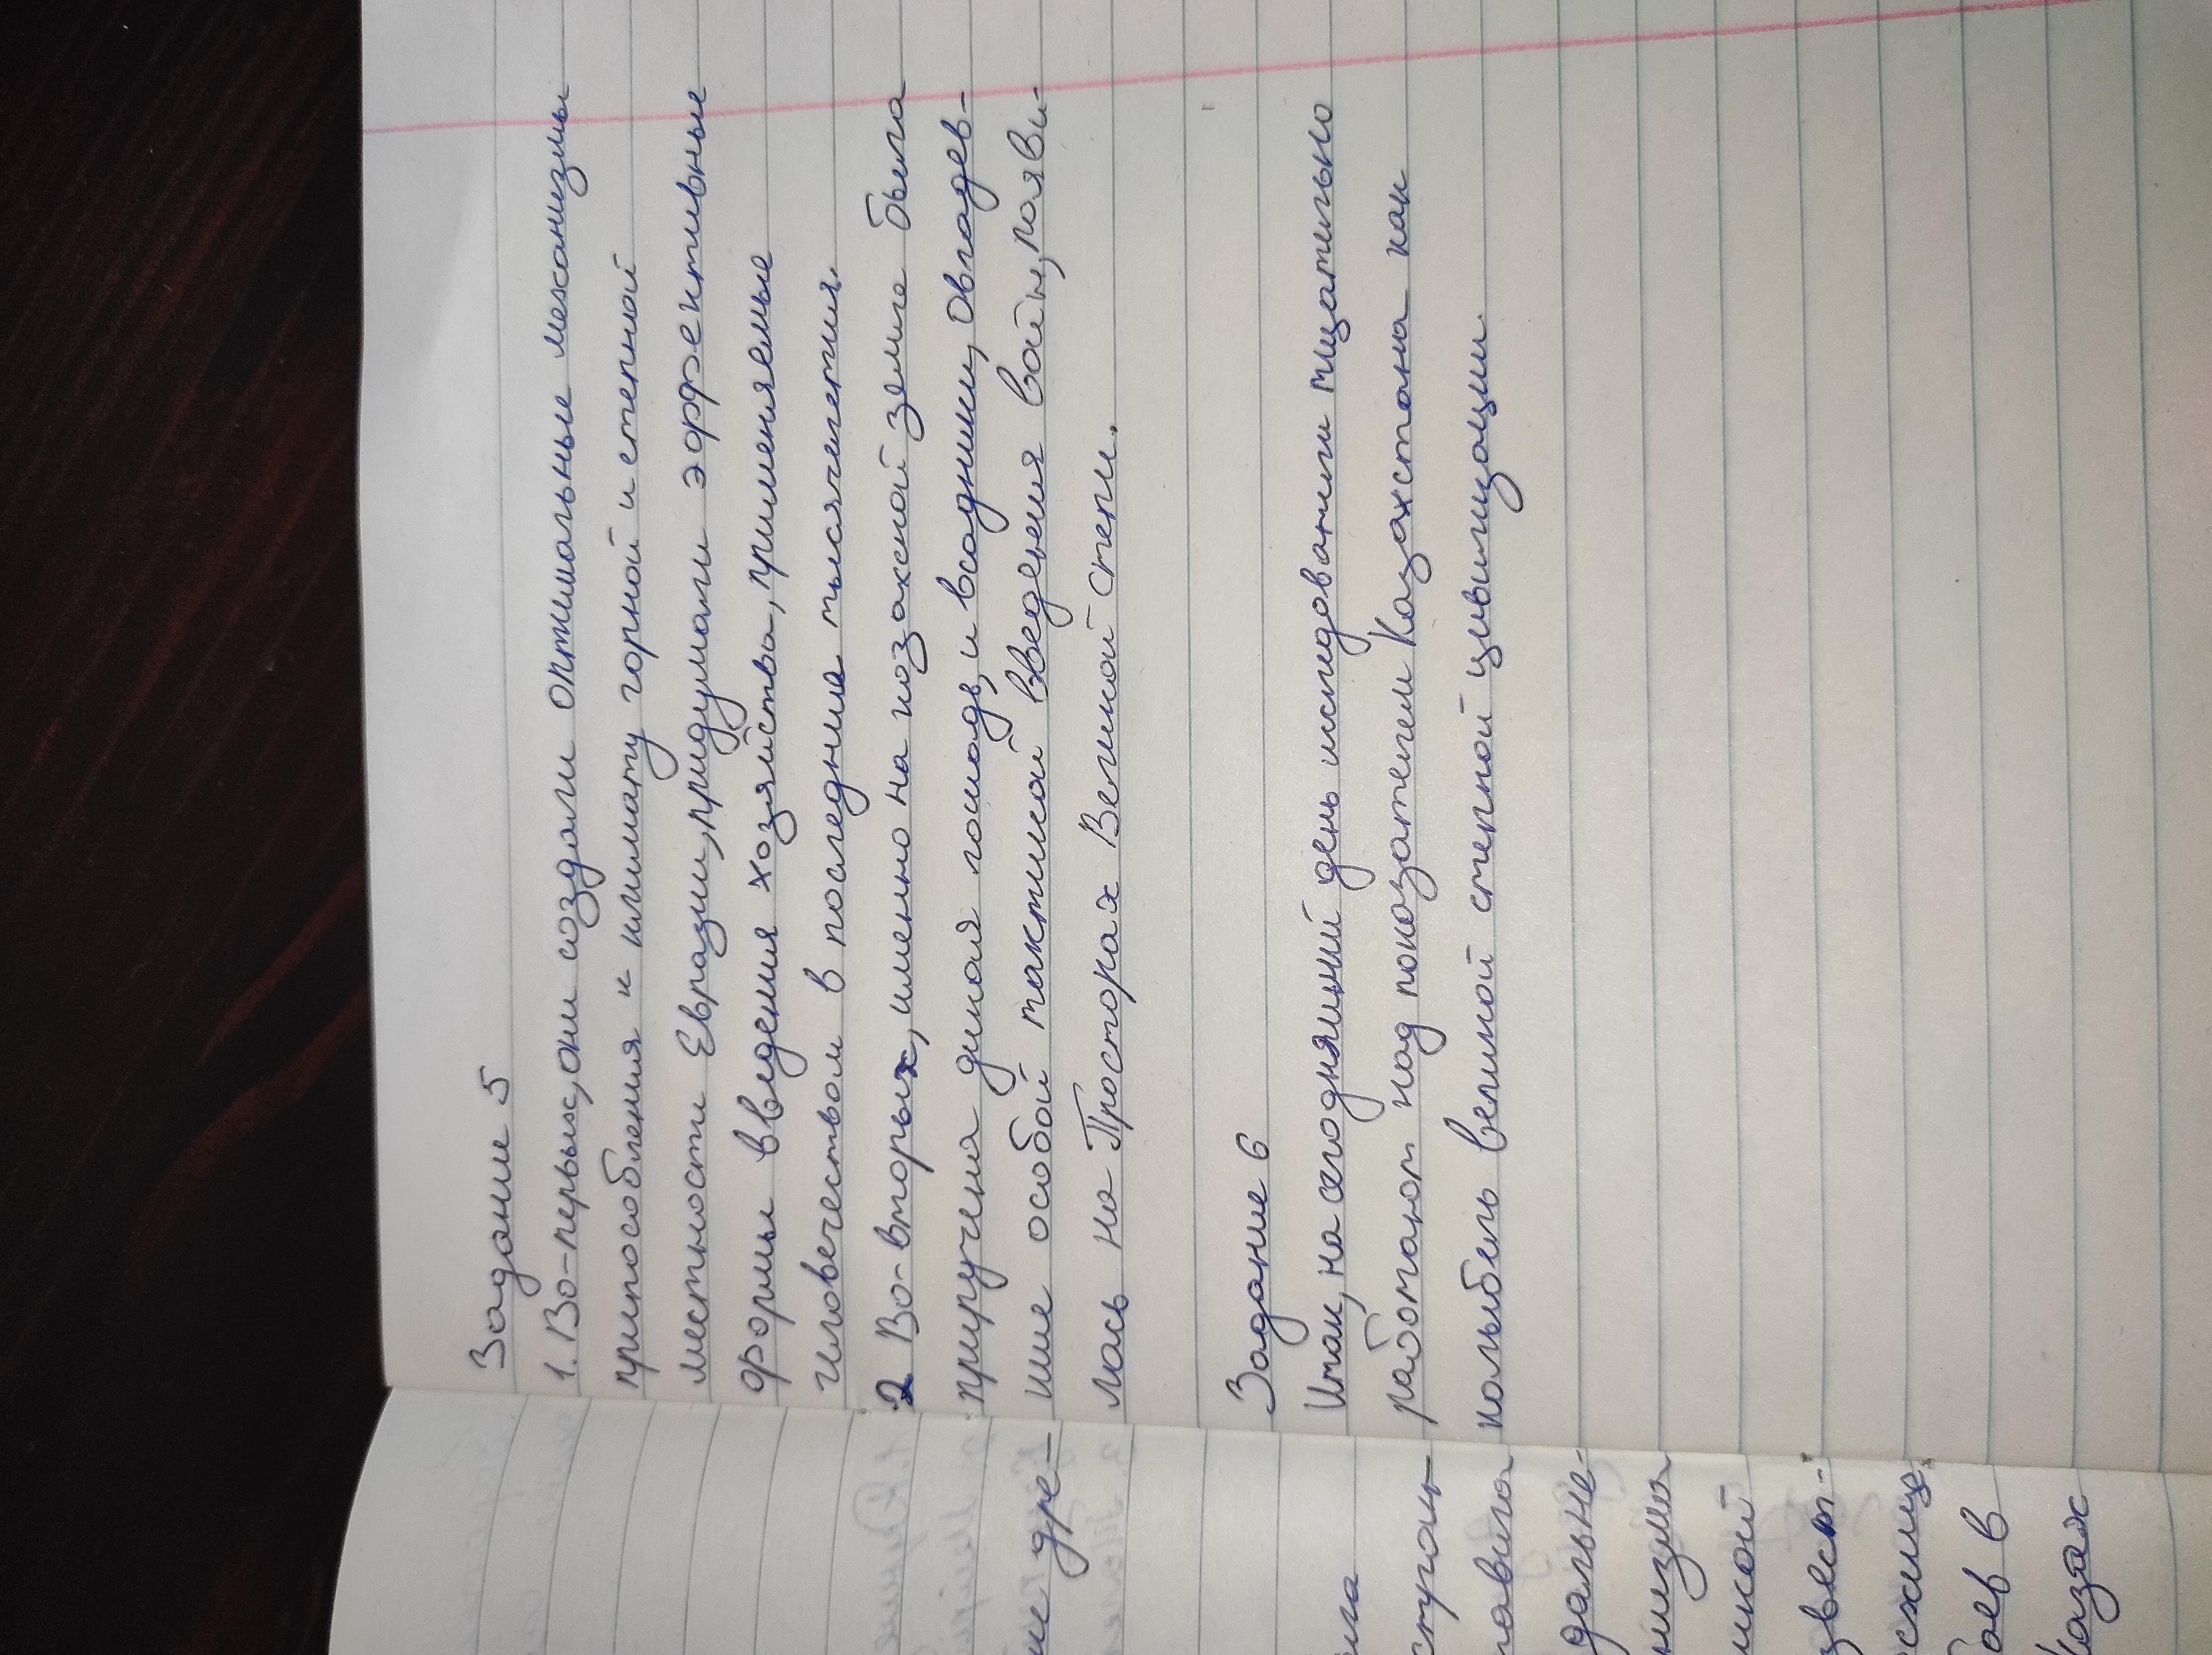 Задание 5
1. Во-первых, они создали оптимальные механизмы
приспособления к климату горной и степной
местности Евразии, придумали эффективные
формы введения хозяйства, применяемые
человечеством в последние тысячелетия.
2 Во-вторых, именно на казахской земле была
приручена дикая лошадь, и всадники, овладев-
шие особой тактикой введения войн, появи-
лась на Просторах Великой степи.
Задание 6
Итак, на сегодняшний день исследователи тщательно
работают над показателем Казахстана как
колыбель великой степной цивилизации.
ие дре-
ила
ступать
тавила
дальне-
низма
икой
звест-
схищ
оев в
Казах